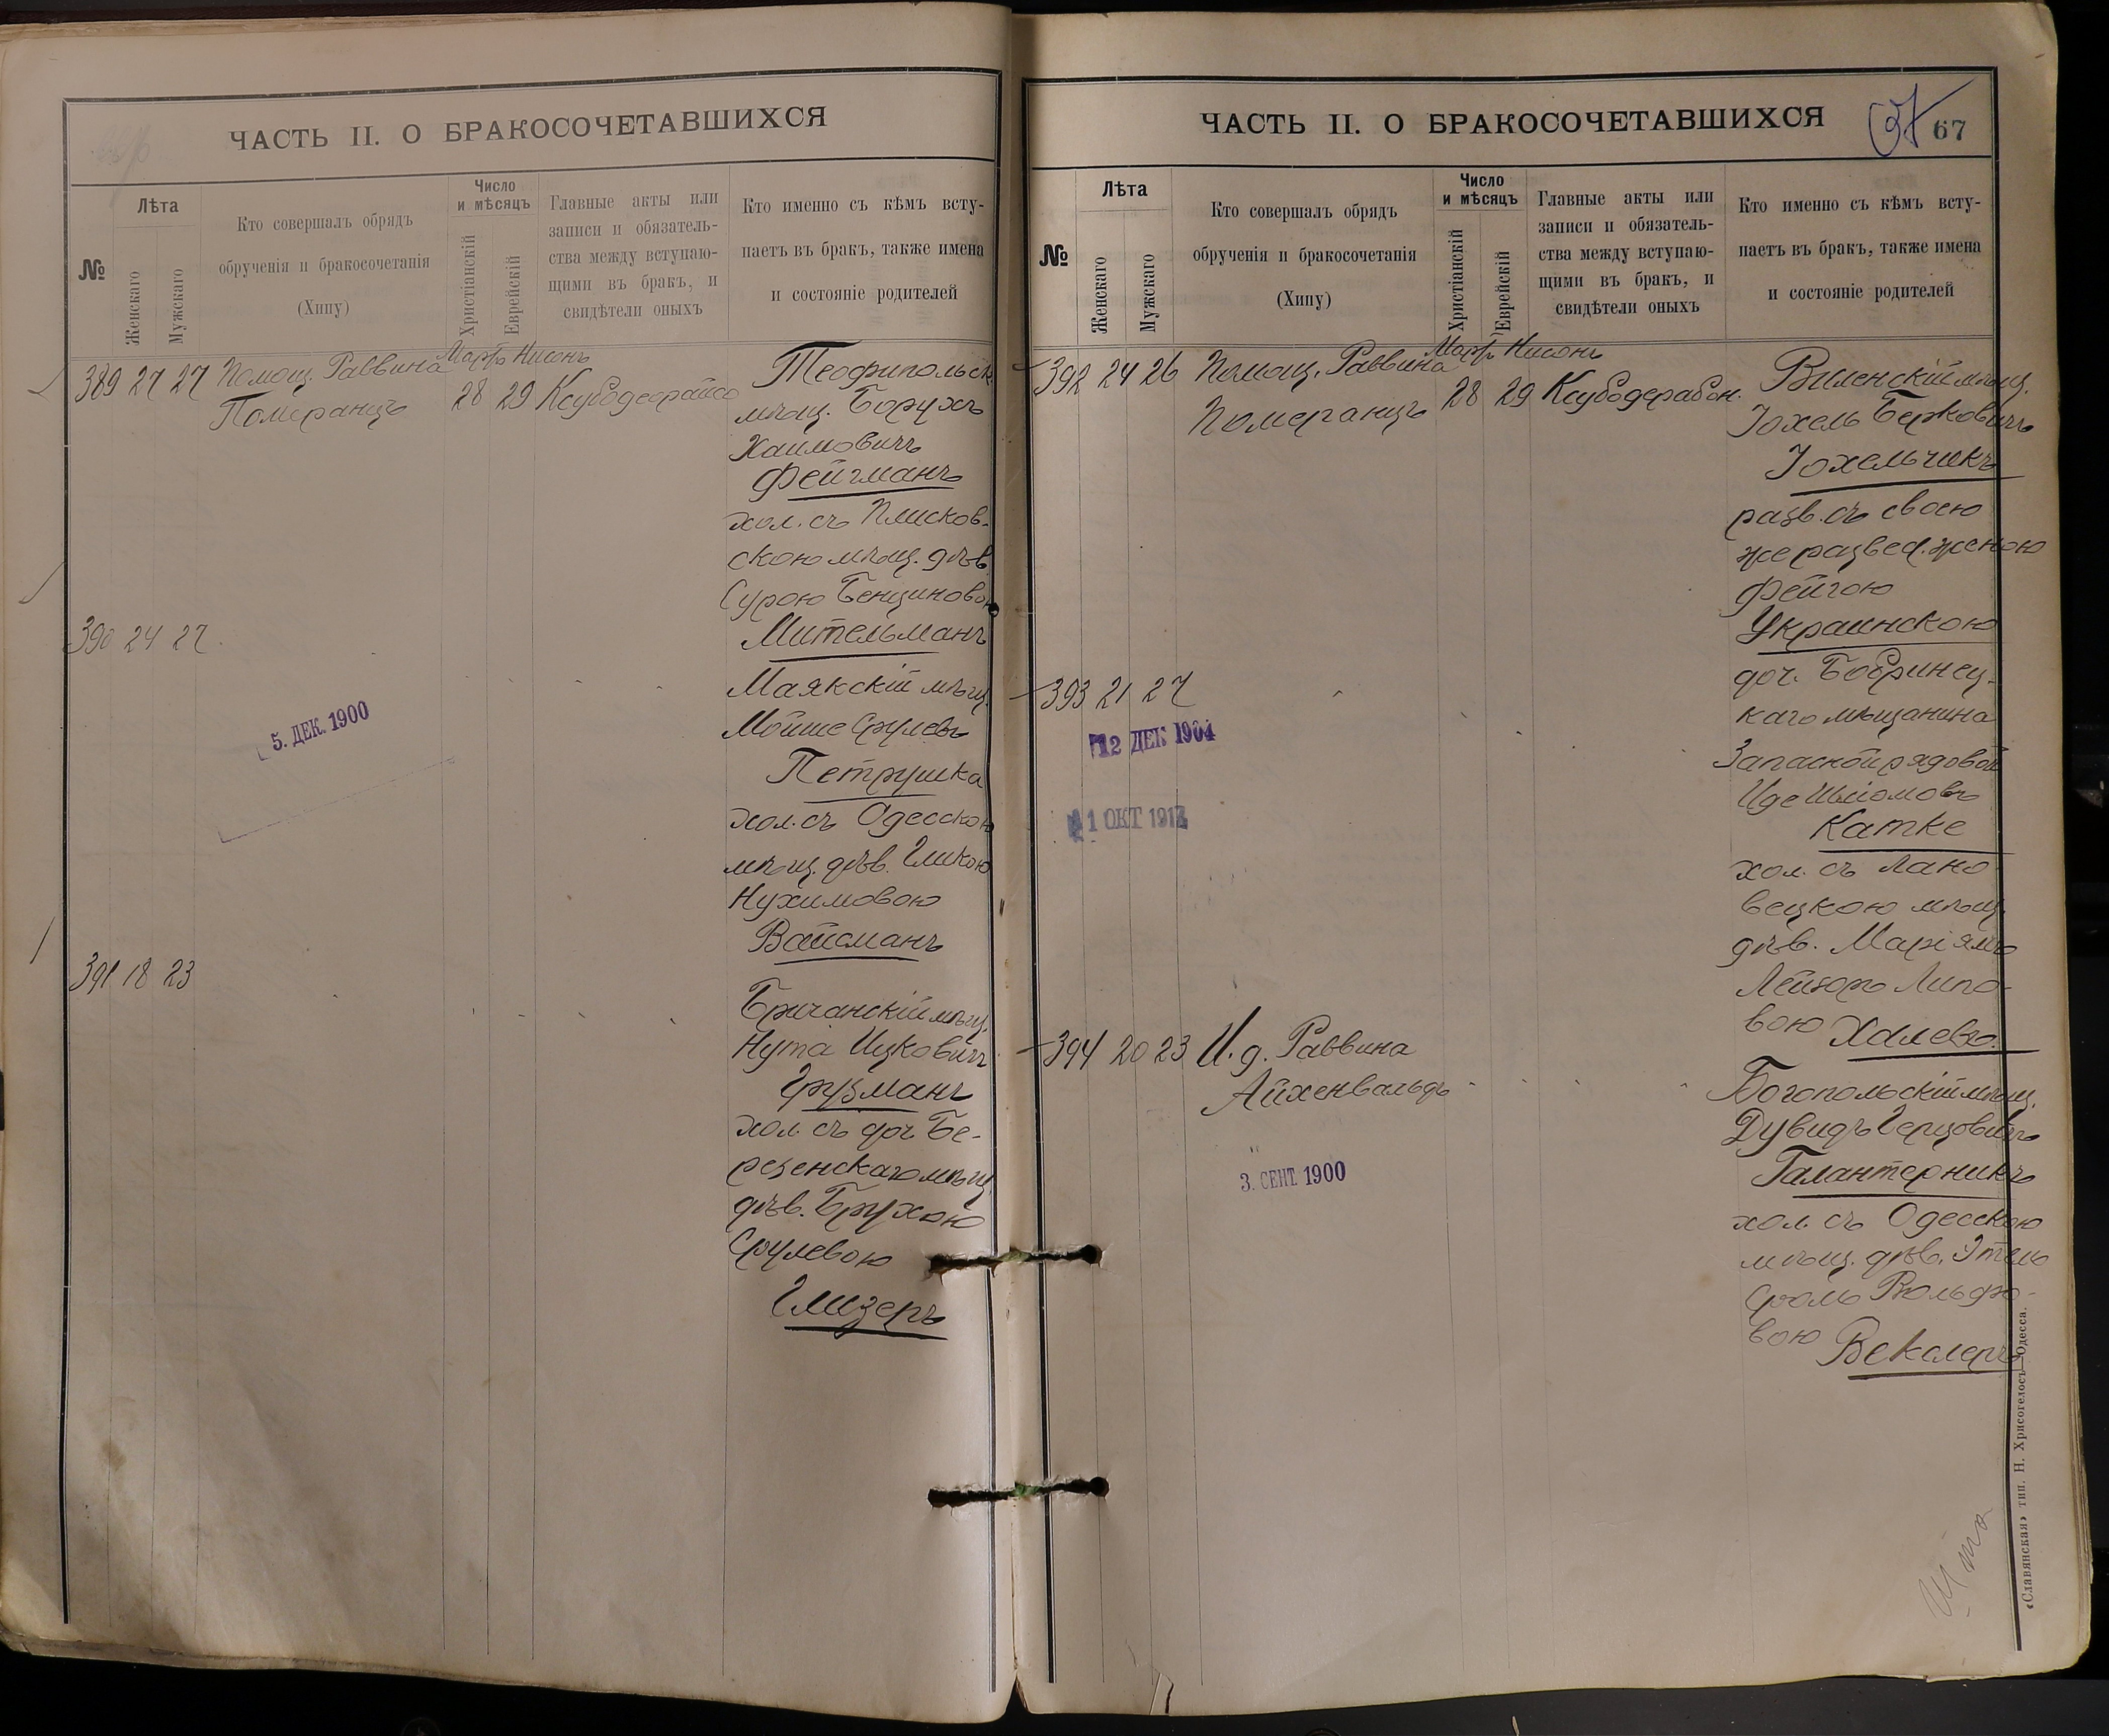 ЧАСТЬ II. О БРАКОСОЧЕТАВШИХСЯ
№
Лѣта
Женскаго
Мужскаго
Кто совершалъ обрядъ
обрученія и бракосочетанія
(Хипу)
Число
и мѣсяцъ
Христіанскій
Еврейскій
Главные акты или
записи и обязатель-
ства между вступаю-
щими въ бракъ, и
свидѣтели оныхъ
Кто именно съ кѣмъ всту-
паетъ въ бракъ, также имена
и состояніе родителей
389 27 27 Помощ. Раввина
Померанцъ
Мартъ Нисонъ
28 29
Теофипольск.
мѣщ. Борухъ
Хаимовичъ
Фейгманъ
хол. съ Плисков-
скою мѣщ. дѣв.
Сурою Бенціоново
Мительманъ
390 24 27
Маякскій мѣщ.
Мойше Срулевъ
Петрушка
хол. съ Одесскою
мѣщ. дѣв. Гликою
Нухимовою
Вайсманъ
5. ДЕК. 1900
391 18 23
Бричанскій мѣщ.
Нута Ицковичъ
Грузманъ
хол. съ доч. Бе-
резенскаго мѣщ.
дѣв. Брухою
Срулевою
Глизеръ
ЧАСТЬ II. О БРАКОСОЧЕТАВШИХСЯ
37
67
№
Лѣта
Женскаго
Мужскаго
Кто совершалъ обрядъ
обрученія и бракосочетанія
(Хипу)
Число
и мѣсяцъ
Христіанскій
Еврейскій
Главные акты или
записи и обязатель-
ства между вступаю-
щими въ бракъ, и
свидѣтели оныхъ
Кто именно съ кѣмъ всту-
паетъ въ бракъ, также имена
и состояніе родителей
392 24 26 Помощ. Раввина
Померанцъ
Мартъ Нисонъ
28 29 Ксубодерабон.
Виленскій мѣщ.
Іохель Берковичъ
Іохельчикъ
разв. съ своею
же развед. женою
Фейгою
Украинскою
доч. Бобринец-
каго мѣщанина
393 21 27
Запасной рядовой
Иде Шліомовъ
Катке
хол. съ Лано
вецкою мѣщ.
дѣв. Маріямъ
Лейзоръ Липо-
вою Халевъ.
12 ДЕК 1904
1 ОКТ 191
394 20 23 И. д. Раввина
Айхенвальдъ
Богопольскій мѣщ.
Дувидъ Герцовичъ
Галантерникъ
хол. съ Одесскою
мѣщ. дѣв. Этель
Сроль Вольфо-
вою Векслеръ
3. СЕНТ 1900
«Славянская» тип. Н. Хрисогелосъ, Одесса.